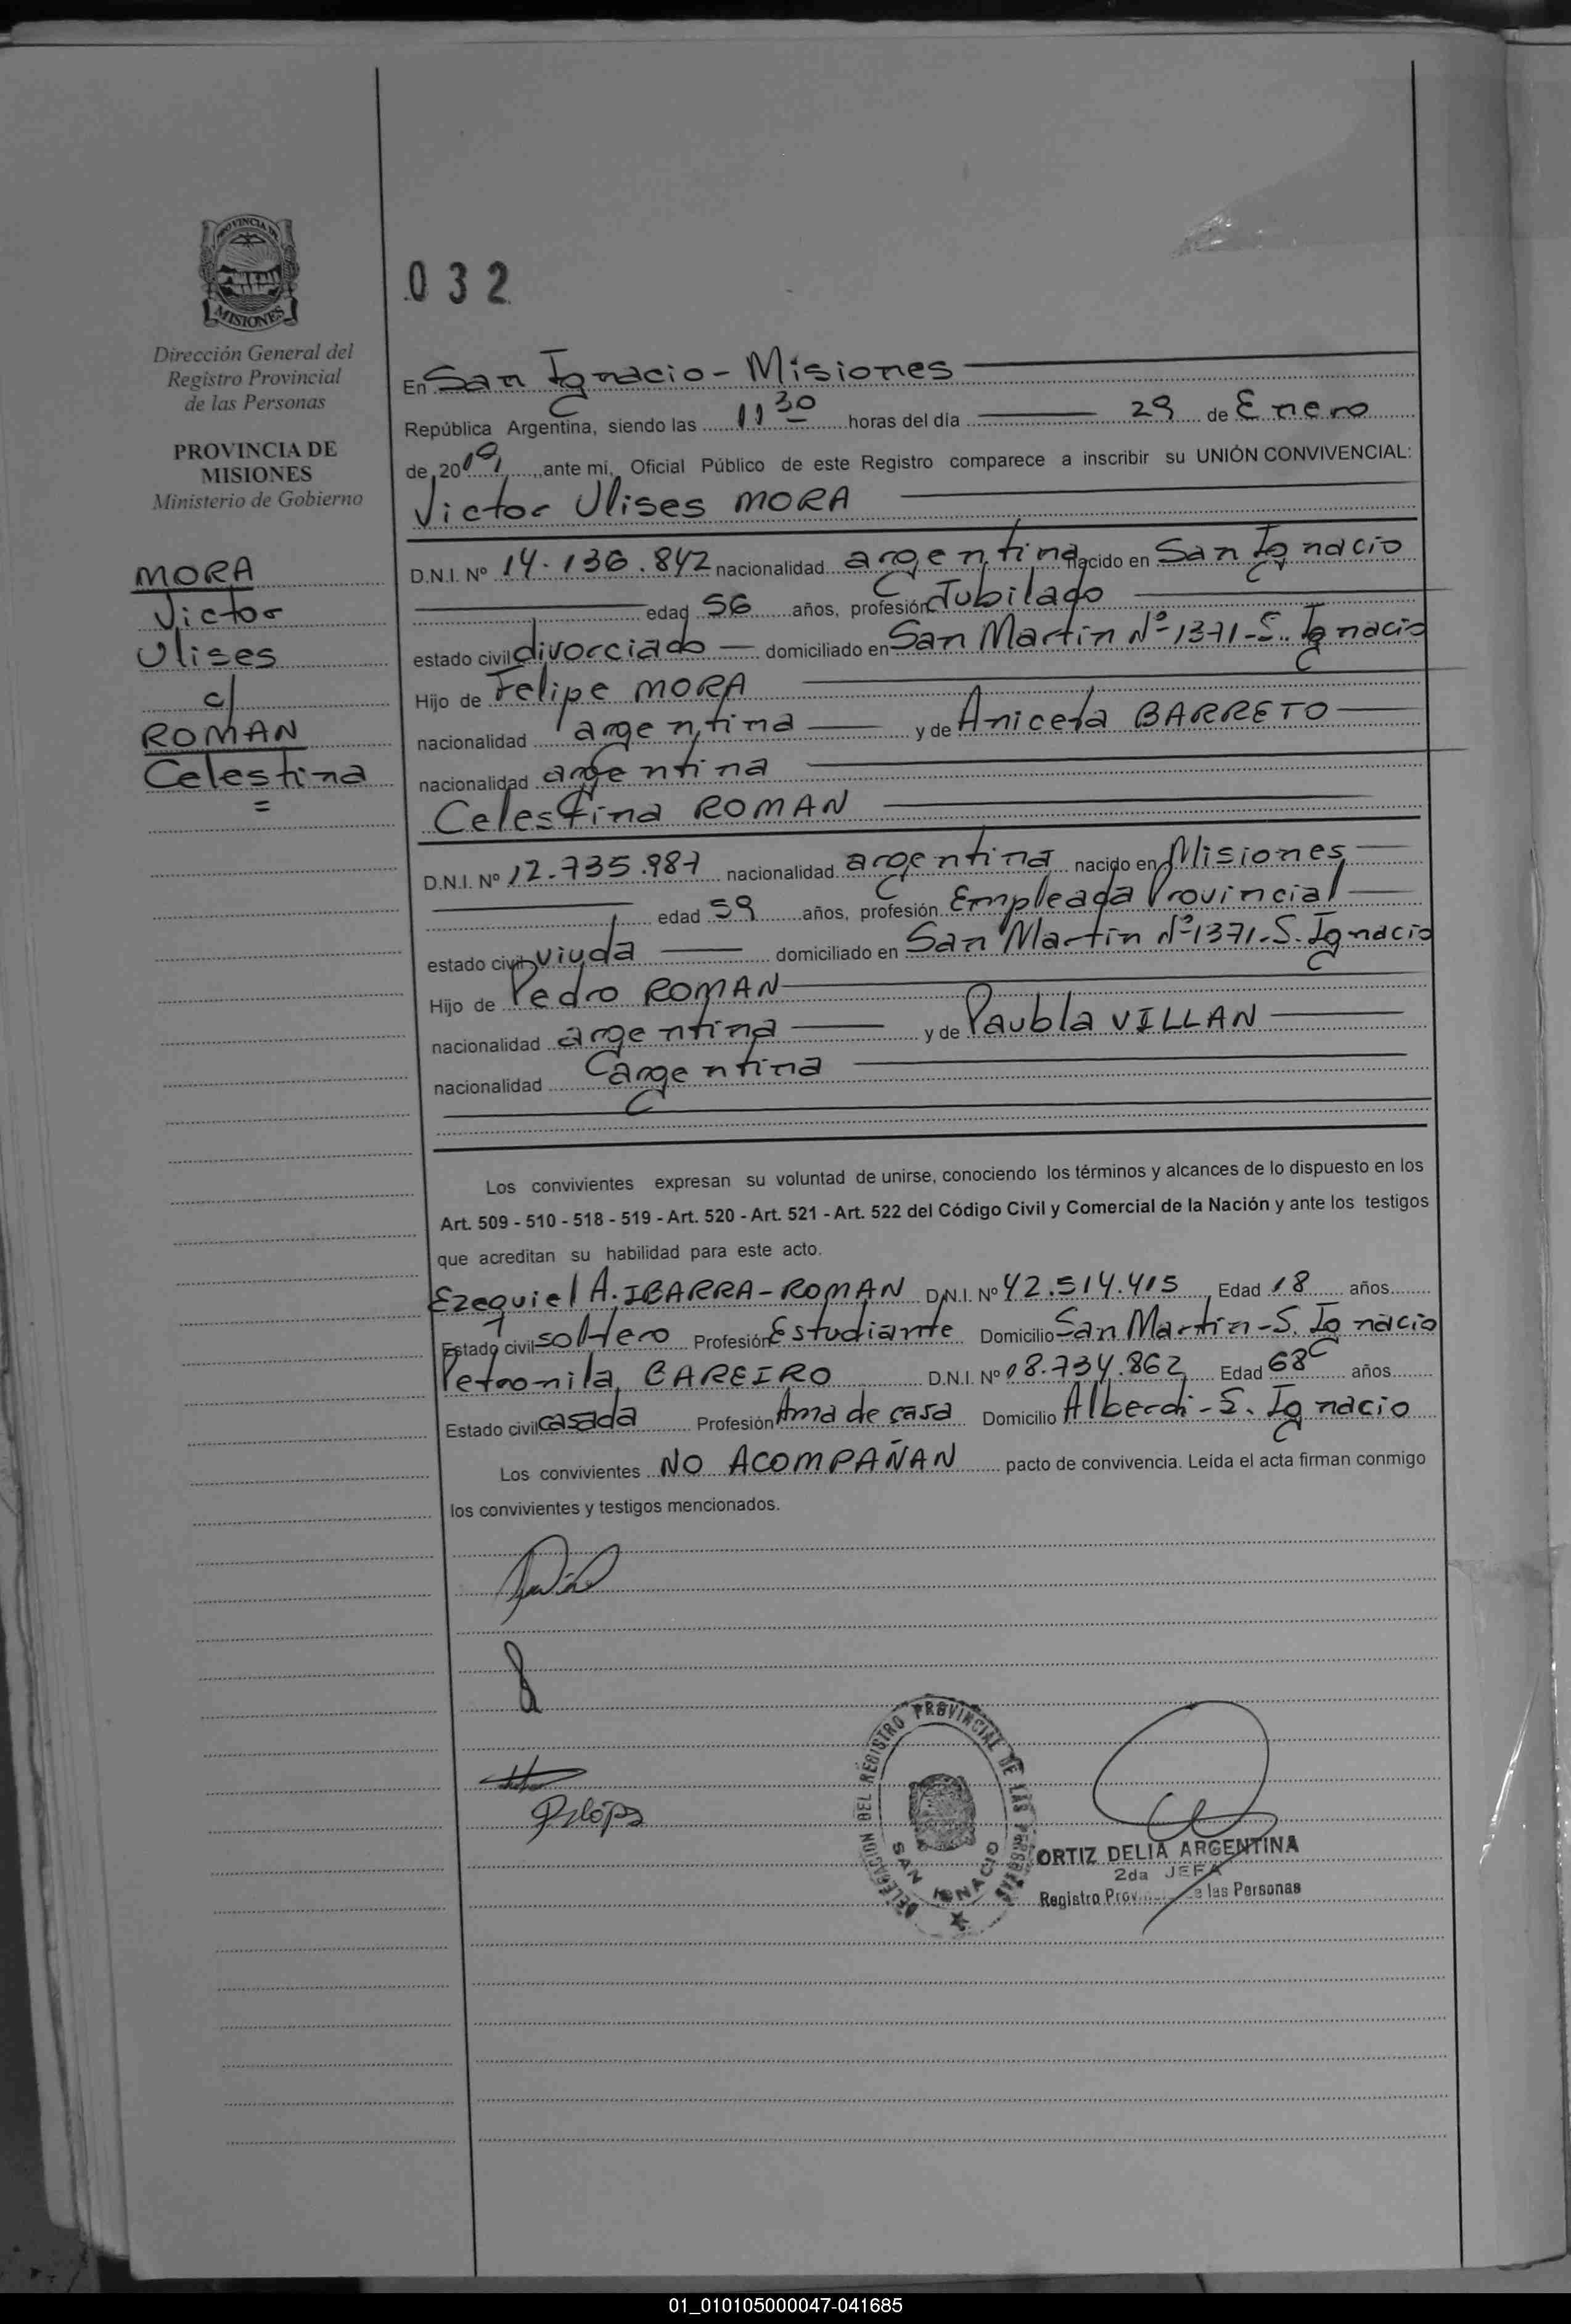 PROVINCIA DE
MISIONES
Dirección General del
Registro Provincial
de las Personas
PROVINCIA DE
MISIONES
Ministerio de Gobierno
MORA
Victor
Ulises
c/
ROMAN
Celestina
=
032
En San Ignacio - Misiones
República Argentina, siendo las 11 30 horas del día 29 de Enero
de 2019, ante mi, Oficial Público de este Registro comparece a inscribir su UNIÓN CONVIVENCIAL:
Victor Ulises MORA
D.N.I. Nº 14.136.842 nacionalidad argentina nacido en San Ignacio
edad 56 años, profesión Jubilado
estado civil divorciado domiciliado en San Martin Nº 1371-S. Ignacio
Hijo de Felipe MORA
nacionalidad argentina y de Aniceta BARRETO
nacionalidad argentina
Celestina ROMAN
D.N.I. Nº 12.735.987 nacionalidad argentina nacido en Misiones
edad 59 años, profesión Empleada Provincial
estado civil viuda domiciliado en San Martin Nº 1371-S. Ignacio
Hijo de Pedro ROMAN
nacionalidad argentina y de Paubla VILLAN
nacionalidad argentina
Los convivientes expresan su voluntad de unirse, conociendo los términos y alcances de lo dispuesto en los
Art. 509 - 510 - 518 - 519 - Art. 520 - Art. 521 - Art. 522 del Código Civil y Comercial de la Nación y ante los testigos
que acreditan su habilidad para este acto.
Ezequiel A. IBARRA-ROMAN D.N.I. Nº 42.514.415 Edad 18 años
Estado civil soltero Profesión Estudiante Domicilio San Martin-S. Ignacio
Petronila CAREIRO D.N.I. Nº 08.734.862 Edad 68 años
Estado civil casada Profesión Ama de casa Domicilio Alberdi-S. Ignacio
Los convivientes NO ACOMPAÑAN pacto de convivencia. Leída el acta firman conmigo
los convivientes y testigos mencionados.
DELEGACION DEL REGISTRO PROVINCIAL DE LAS PERSONAS
SAN IGNACIO
ORTIZ DELIA ARGENTINA
2da JEFA
Registro Prov de las Personas
01_010105000047-041685